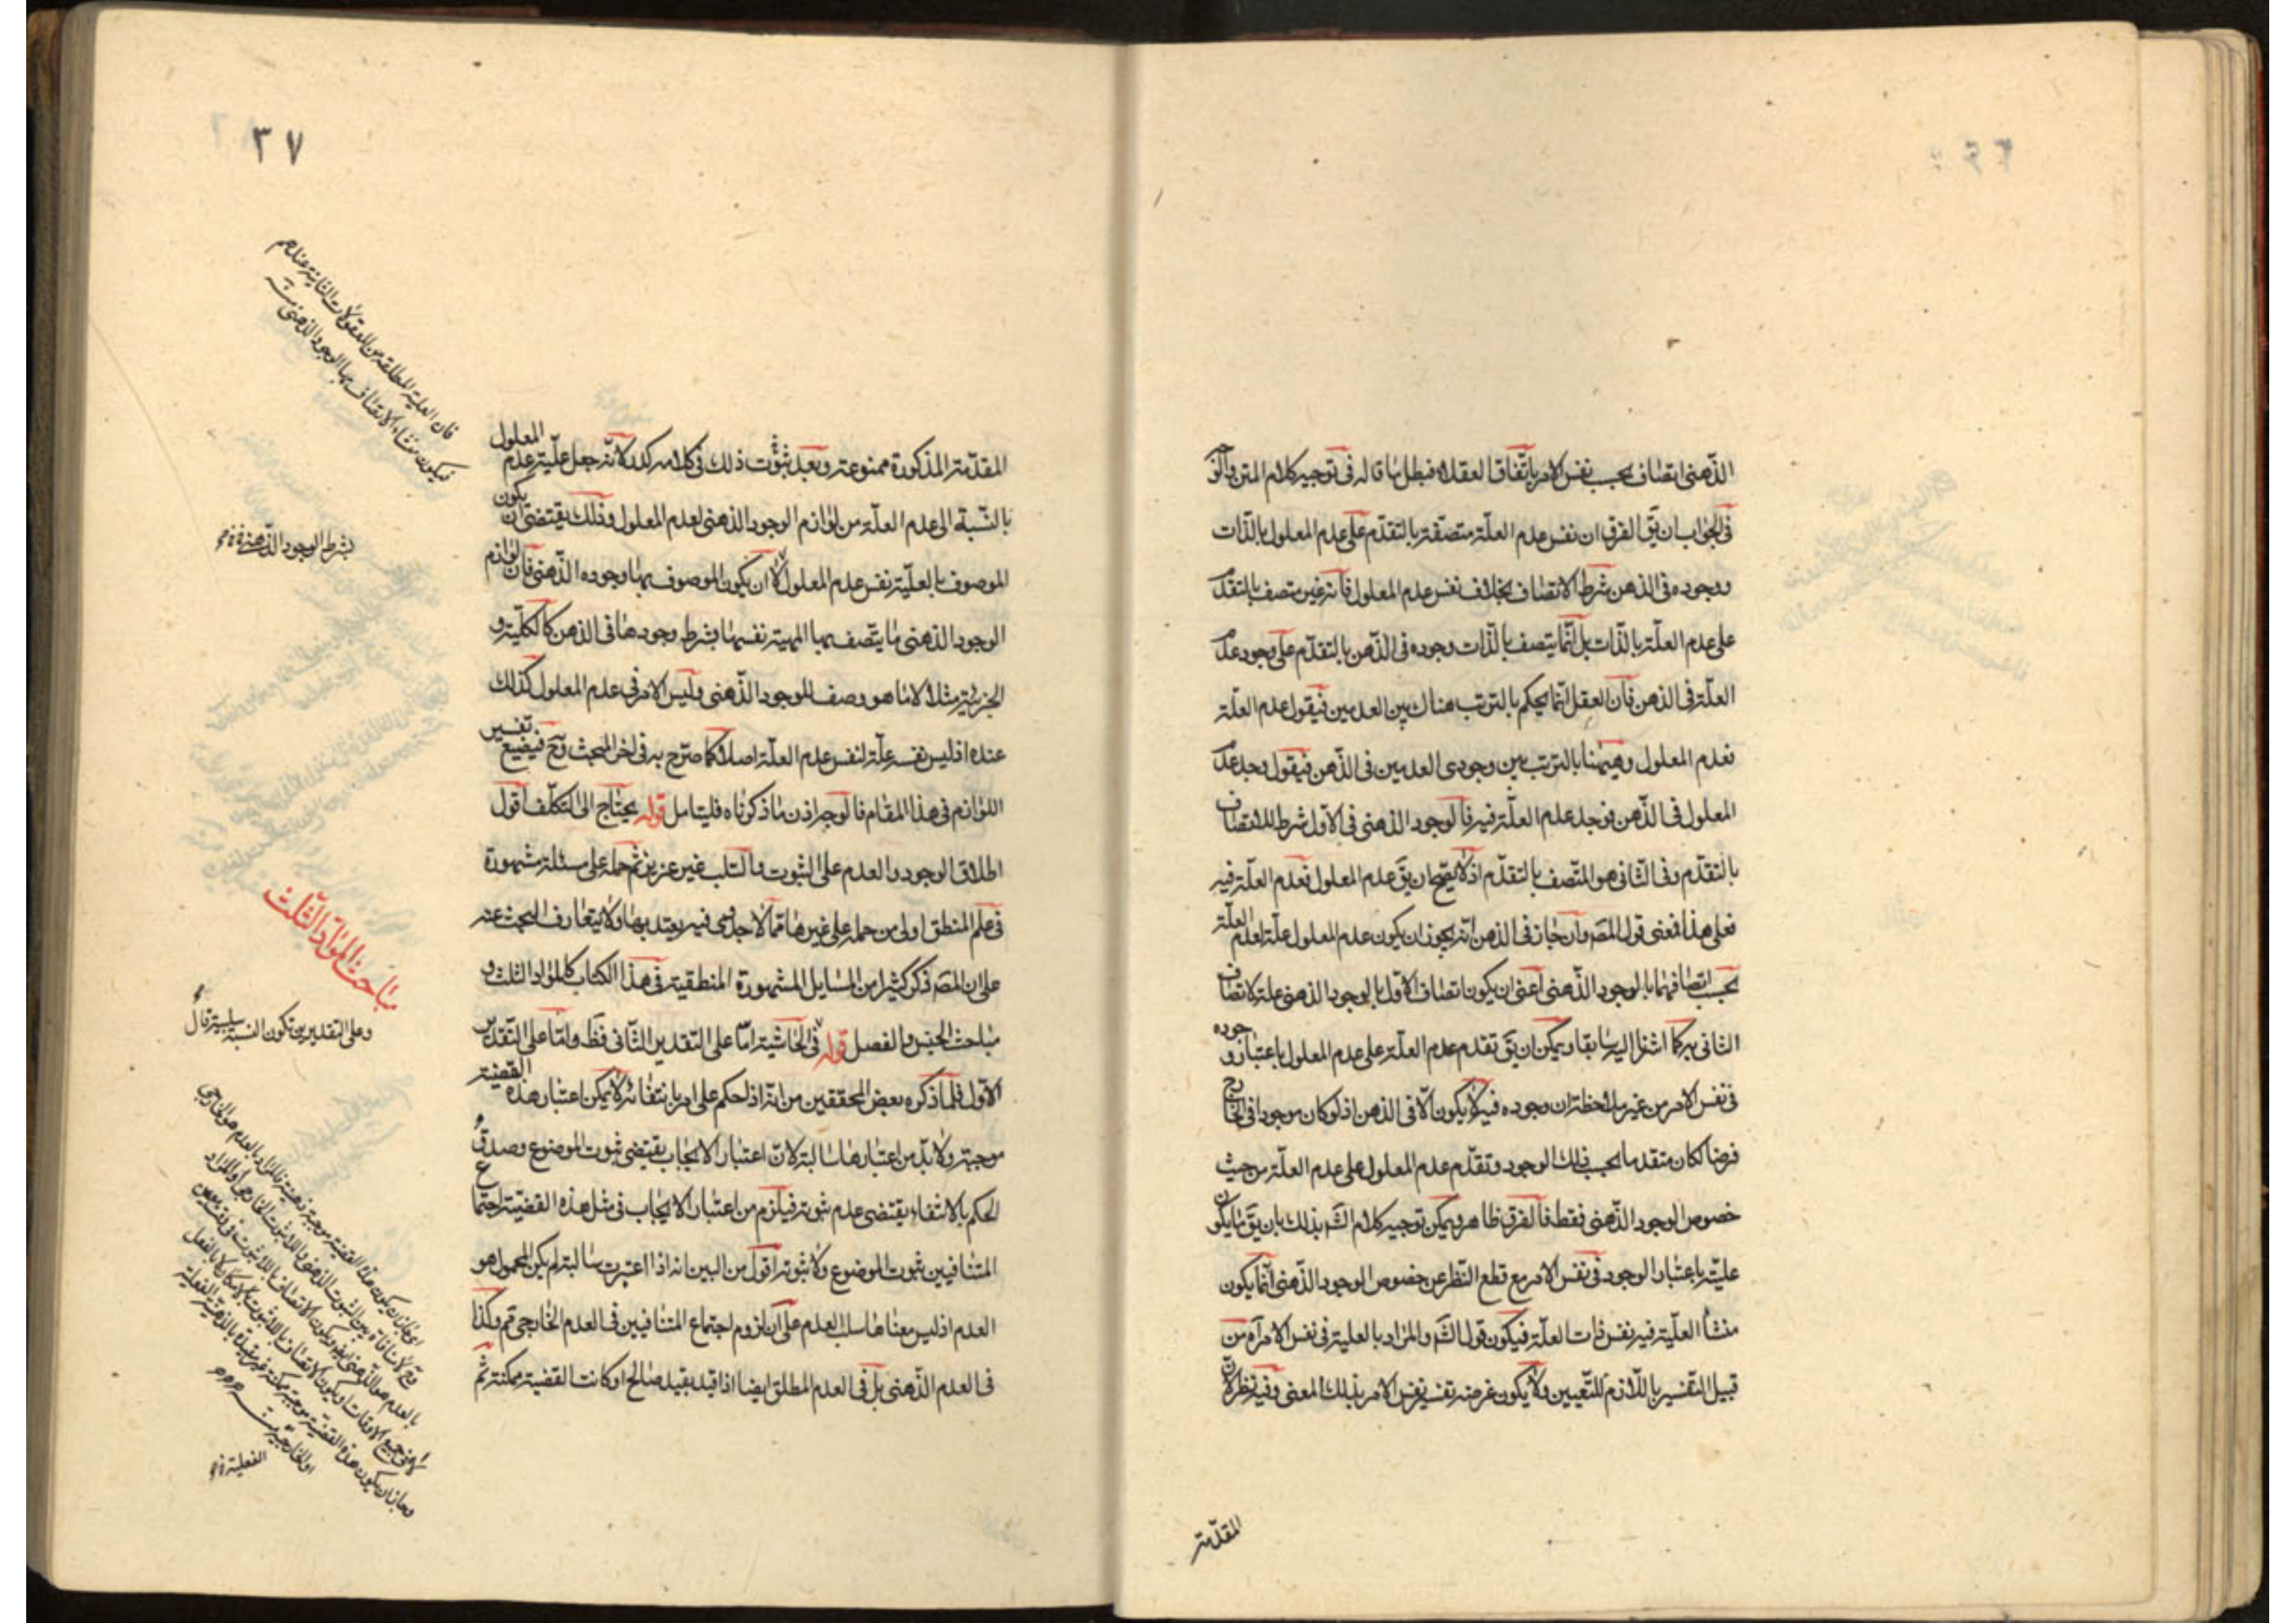 الذهنى اتصاف بحسب نفس الامر باتفاق العقلاء فبطل ما قاله فى توجيه كلام المتن
فى الجواب ان يق الفرق ان نفس عدم العلة متصفة بالتقدم على عدم المعلول بالذات
ووجوده فى الذهن شرط الاتصاف بخلاف نفس عدم المعلول فانه غير متصف بالتقدم
على عدم العلة بالذات بل انما يتصف بالذات وجوده فى الذهن بالتقدم على وجود عدم
العلة فى الذهن فان العقل انما يحكم بالترتب هناك بين العدمين فيقول عدم العلة
فعدم المعلول وههنا بالترتب بين وجودى العدمين فى الذهن فيقول وجد عدم
المعلول فى الذهن فوجد عدم العلة فيه فالوجود الذهنى فى الاول شرط للاتصاف
بالتقدم وفى الثانى هو المتصف بالتقدم اذ لا يصح ان يق عدم المعلول فعدم العلة فيه
فعلى هذا فمعنى قول المصه وان جاز فى الذهن انه يجوز ان يكون عدم المعلول علة لعدم العلة
بحسب اتصافهما بالوجود الذهنى اعنى ان يكون اتصاف الاول بالوجود الذهنى علة لاتصاف
الثانى به كما اشرنا اليه سابقا ويمكن ان يق تقدم عدم العلة على عدم المعلول باعتبار وجوده
فى نفس الامر من غير ملاحظة ان وجوده فيه لا يكون الا فى الذهن اذ لو كان موجودا فى الخارج
فرضا لكان متقدما بحسب ذلك الوجود وتقدم عدم المعلول على عدم العلة من حيث
خصوص الوجود الذهنى فقط فالفرق ظاهر ويمكن توجيه كلام الشه بذلك بان يق ما يكون
علية باعتبار الوجود فى نفس الامر مع قطع النظر عن خصوص الوجود الذهنى انما يكون
منشأ العلية فيه نفس ذات العلة فيكون قول الشه والمراد بالعلية فى نفس الامر آه من
قبيل التفسير باللازم للتعيين ولا يكون غرضه تفسير نفس الامر بذلك المعنى وفيه نظر لان
المقدمة
٣٧
المقدمة المذكورة ممنوعة وبعد ثبوت ذلك فى كلامه كدد لانه جعل علية عدم المعلول
بالنسبة الى عدم العلة من لوازم الوجود الذهنى لعدم المعلول وذلك يقتضى ان يكون
الموصوف بالعلية نفس عدم المعلول لا ان يكون الموصوف بها وجوده الذهنى فان لوازم
الوجود الذهنى ما يتصف بها المهية نفسها بشرط وجودها فى الذهن كالكلية و
الجزئية مثلا لا ما هو وصف للموجود الذهنى وليس الامر فى عدم المعلول كذلك
عنده اذ ليس نفسه علة لنفس عدم العلة اصلا كما صرح به فى اخر المبحث وح فيضيع تفسير
اللوازم فى هذا المقام فالوجه اذن ما ذكرناه فليتامل قوله يحتاج الى التكلف اقول
اطلاق الوجود والعدم على الثبوت والسلب غير عزيز ثم حمله على مسئلة مشهورة
فى علم المنطق اولى من حمله على غيرها مما لا جدوى فيه يعتد بها ولا يتعارف البحث عنه
على ان المصه ذكر كثيرا من المسايل المشهورة المنطقية فى هذا الكتاب كالمواد الثلث و
مباحث الجنس والفصل قوله فى الحاشية اما على التقدير الثانى فظ واما على التقدير
الاول فلما ذكره بعض المحققين من انه اذا حكم على امر بانتفائه لا يمكن اعتبار هذه القضية
موجبة ولا بد من اعتبارها سالبة لان اعتبار الايجاب يقتضى ثبوت الموضوع وصدق
الحكم بالانتفاء يقتضى عدم ثبوته فيلزم من اعتبار الايجاب فى مثل هذه القضية اجتماع
المتنافيين ثبوت الموضوع ولا ثبوته اقول من البين انه اذا اعتبرت سالبة لم يكن المحمول هو
العدم اذ ليس معناها سلب العدم على ان لزوم اجتماع المتنافيين فى العدم الخارجى مم وكذا
فى العدم الذهنى بل فى العدم المطلق ايضا اذا قيد بقيد صالح او كانت القضية ممكنة ثم
فان العلية المطلقه من المعقولات الثانية عندهم
فيكون منشاء الاتصاف بها الوجود الذهنى
بشرط الوجود الذهنى
مباحث المواد الثلث
وعلى التقديرين تكون النسبة سلبية